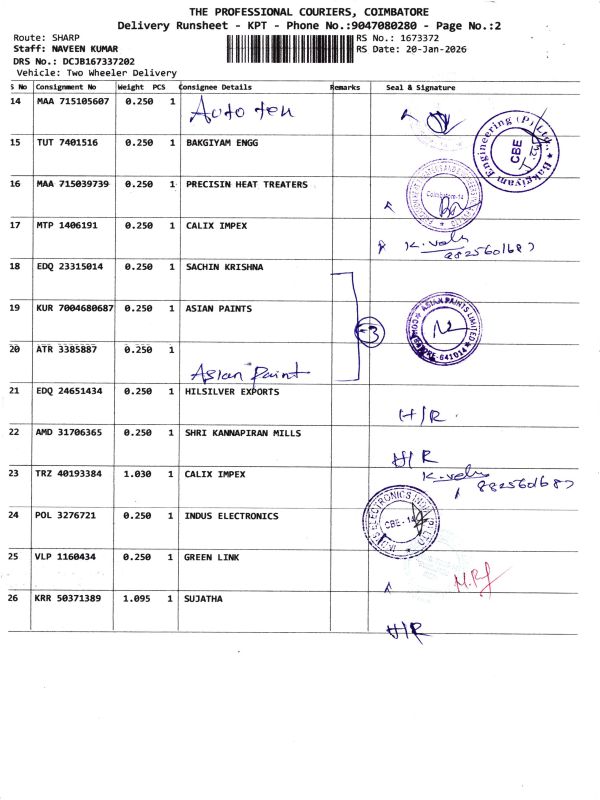 THE PROFESSIONAL COURIERS, COIMBATORE
Delivery Runsheet - KPT - Phone No.:9047080280 - Page No.:2
Route: SHARP
RS No.: 1673372
Staff: NAVEEN KUMAR
RS Date: 20-Jan-2026
DRS No.: DCJB167337202
Vehicle: Two Wheeler Delivery
S No Consignment No Weight PCS Consignee Details Remarks Seal & Signature
14 MAA 715105607 0.250 1
15 TUT 7401516 0.250 1 BAKGIYAM ENGG
Bakgiyam Engineering (P) Ltd.
CBE
16 MAA 715039739 0.250 1 PRECISIN HEAT TREATERS
Coimbatore-14
17 MTP 1406191 0.250 1 CALIX IMPEX
18 EDQ 23315014 0.250 1 SACHIN KRISHNA
19 KUR 7004680687 0.250 1 ASIAN PAINTS
3
ASIAN PAINTS LIMITED
641014
20 ATR 3385887 0.250 1
Asian Paint
21 EDQ 24651434 0.250 1 HILSILVER EXPORTS
H/R
22 AMD 31706365 0.250 1 SHRI KANNAPIRAN MILLS
H/R
23 TRZ 40193384 1.030 1 CALIX IMPEX
24 POL 3276721 0.250 1 INDUS ELECTRONICS
CBE-14
25 VLP 1160434 0.250 1 GREEN LINK
26 KRR 50371389 1.095 1 SUJATHA
H/R